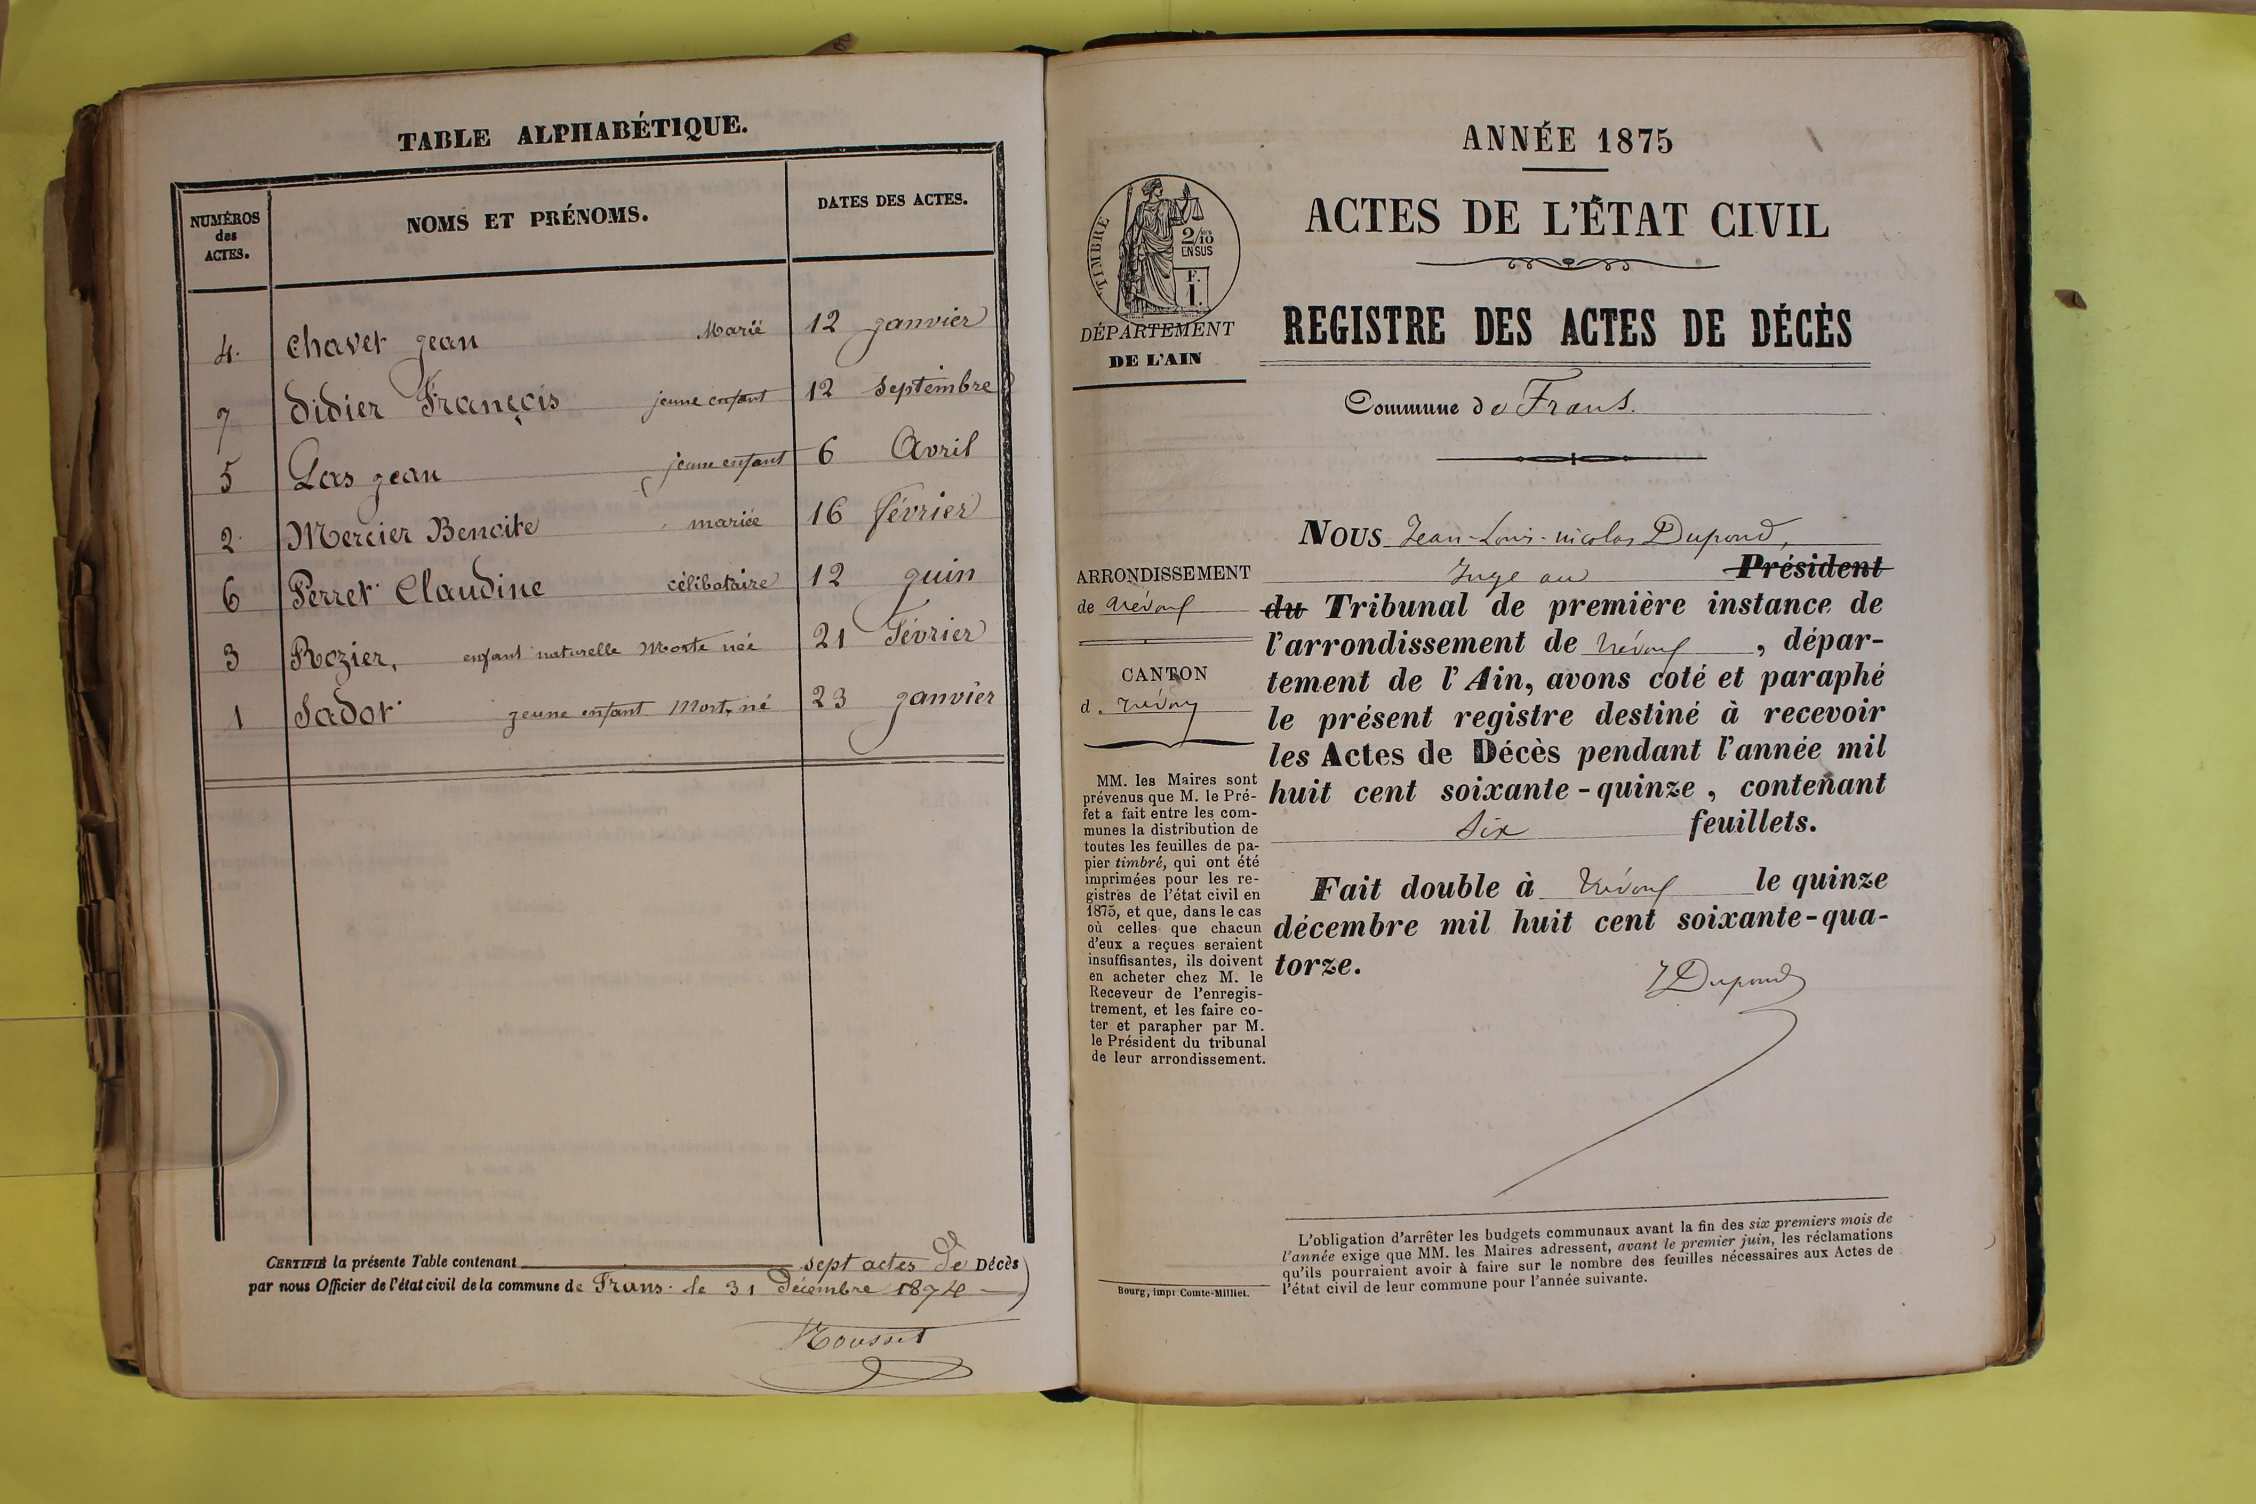 TABLE ALPHABÉTIQUE.
NUMÉROS
des
ACTES.
NOMS ET PRÉNOMS.
DATES DES ACTES.
4. Chavet Jean Marié 12 Janvier
7 Didier François jeune enfant 12 Septembre
5 Gas Jean jeune enfant 6 Avril
2. Mercier Benoite mariée 16 Février
6 Perret Claudine célibataire 12 Juin
3 Rozier, enfant naturelle Morte née 21 Février
1 Sadot jeune enfant Mort, né 23 Janvier
CERTIFIÉ la présente Table contenant sept actes de DÉCÈS
par nous Officier de l'état civil de la commune de Frans. le 31 Décembre 1874
Rousset
ANNÉE 1875
ACTES DE L'ÉTAT CIVIL
TIMBRE
2/10
EN SUS
F.
1.
DÉPARTEMENT
DE L'AIN
REGISTRE DES ACTES DE DÉCÈS
Commune de Frans.
ARRONDISSEMENT
de Trévoux
CANTON
d. Trévoux
MM. les Maires sont
prévenus que M. le Pré-
fet a fait entre les com-
munes la distribution de
toutes les feuilles de pa-
pier timbré, qui ont été
imprimées pour les re-
gistres de l'état civil en
1875, et que, dans le cas
où celles que chacun
d'eux a reçues seraient
insuffisantes, ils doivent
en acheter chez M. le
Receveur de l'enregis-
trement, et les faire co-
ter et parapher par M.
le Président du tribunal
de leur arrondissement.
NOUS Jean-Louis-nicolas Dupond,
Juge au Président
du Tribunal de première instance de
l'arrondissement de Trévoux, dépar-
tement de l'Ain, avons coté et paraphé
le présent registre destiné à recevoir
les Actes de Décès pendant l'année mil
huit cent soixante-quinze, contenant
Six feuillets.
Fait double à Trévoux le quinze
décembre mil huit cent soixante-qua-
torze.
J Dupond
L'obligation d'arrêter les budgets communaux avant la fin des six premiers mois de
l'année exige que MM. les Maires adressent, avant le premier juin, les réclamations
qu'ils pourraient avoir à faire sur le nombre des feuilles nécessaires aux Actes de
l'état civil de leur commune pour l'année suivante.
Bourg, impr. Comte-Milliet.